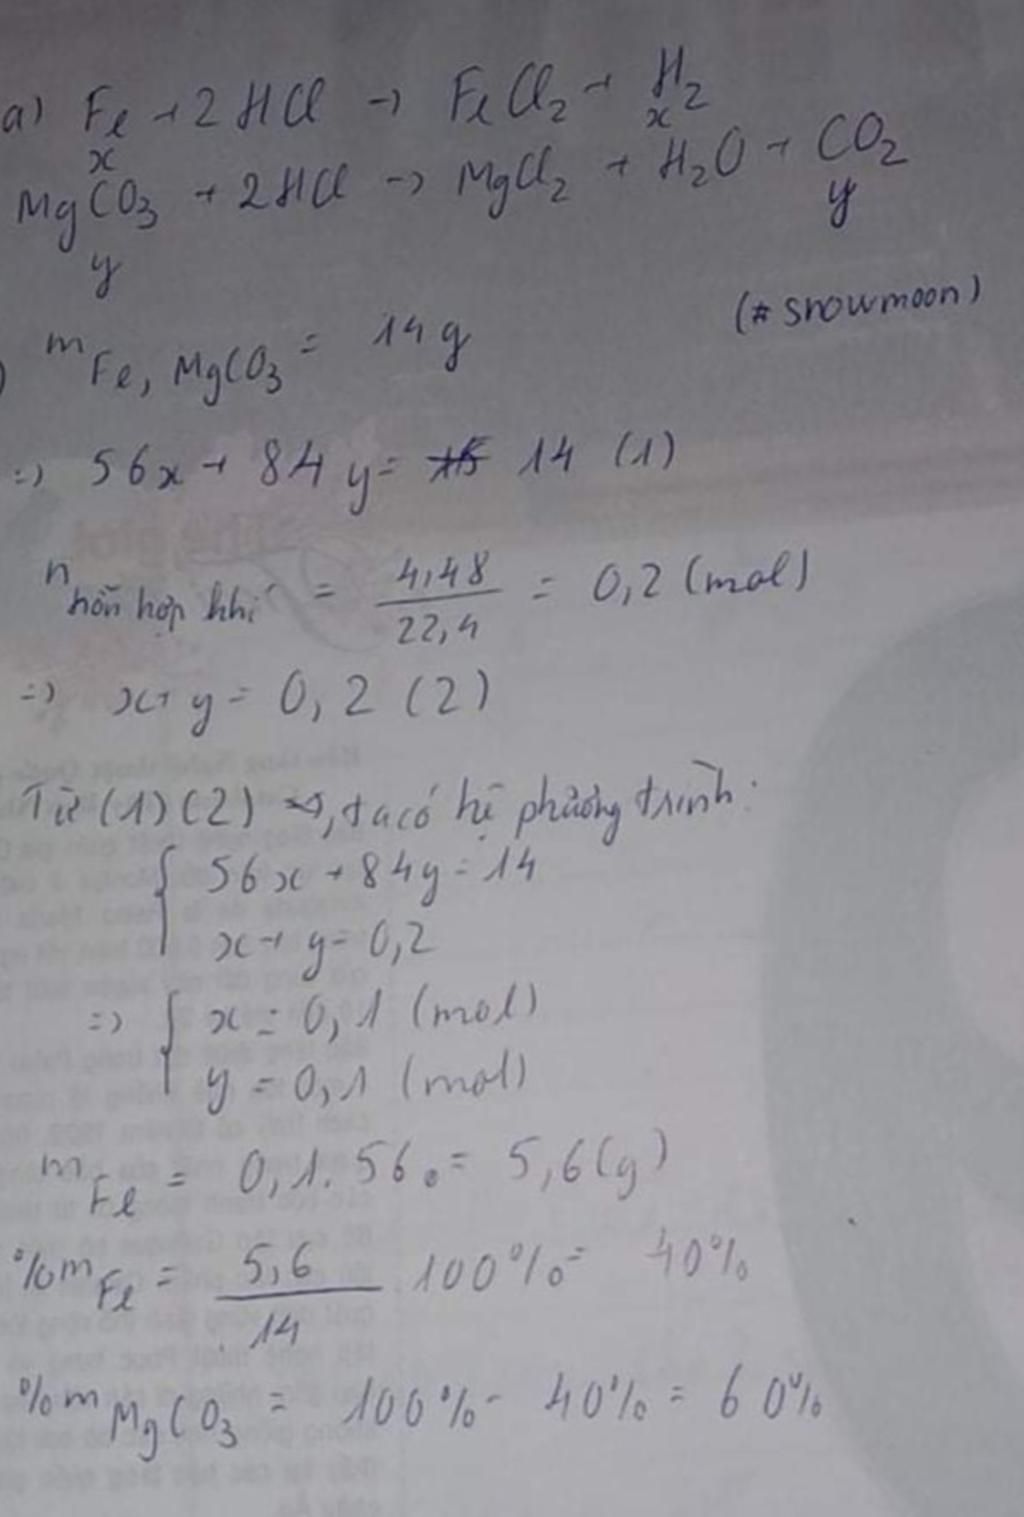 a) Fe + 2HCl → FeCl₂ + H₂
x x
MgCO₃ + 2HCl → MgCl₂ + H₂O + CO₂
y y
(# snowmoon)
) m Fe, MgCO₃ = 14g
=) 56x + 84y = 14 (1)
n hỗn hợp khí = 4,48 / 22,4 = 0,2 (mol)
=) x + y = 0,2 (2)
Từ (1) (2) →, ta có hệ phương trình:
{ 56x + 84y = 14
x + y = 0,2
=) { x = 0,1 (mol)
y = 0,1 (mol)
m Fe = 0,1. 56 = 5,6 (g)
%m Fe = 5,6 / 14 100% = 40%
%m MgCO₃ = 100% - 40% = 60%